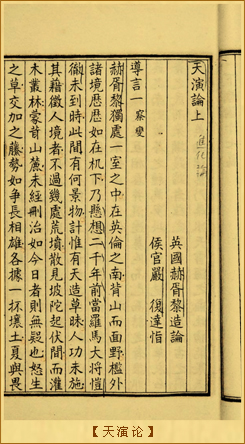 天演論上
進化論
英國赫胥黎造論
侯官嚴 復達恉
導言一 察變
赫胥黎獨處一室之中在英倫之南背山而面野檻外
諸境歷歷如在机下乃懸想二千年前當羅馬大將愷
徹未到時此間有何景物計惟有天造草昧人功未施
其藉徵人境者不過幾處荒墳散見坡陀起伏間而灌
木叢林蒙茸山麓未經刪治如今日者則無疑也怒生
之草交加之藤勢如爭長相雄各據一抔壤土夏與畏
【天演论】